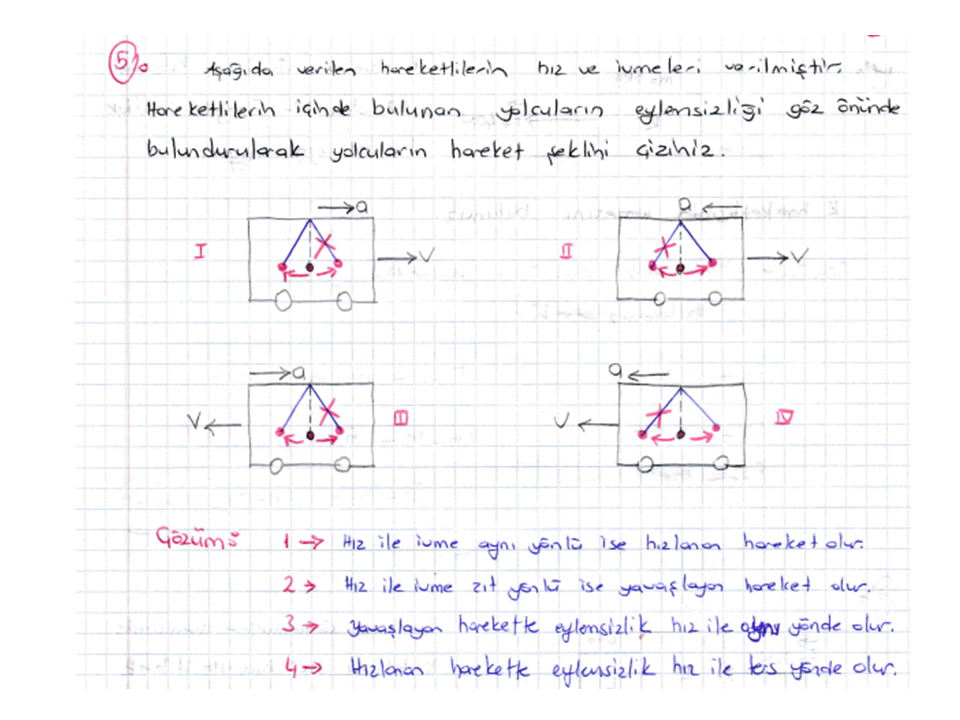 5. Aşağıda verilen hareketlilerin hız ve ivmeleri verilmiştir.
Hareketlilerin içinde bulunan yolcuların eylemsizliği göz önünde
bulundurularak yolcuların hareket şeklini çiziniz.
→a
a ←
I
→V
II
→V
→a
a←
V←
III
V←
IV
Çözüm: 1 → Hız ile ivme aynı yönlü ise hızlanan hareket olur.
2 → Hız ile ivme zıt yönlü ise yavaşlayan hareket olur.
3 → Yavaşlayan harekette eylemsizlik hız ile aynı yönde olur.
4 → Hızlanan harekette eylemsizlik hız ile ters yönde olur.